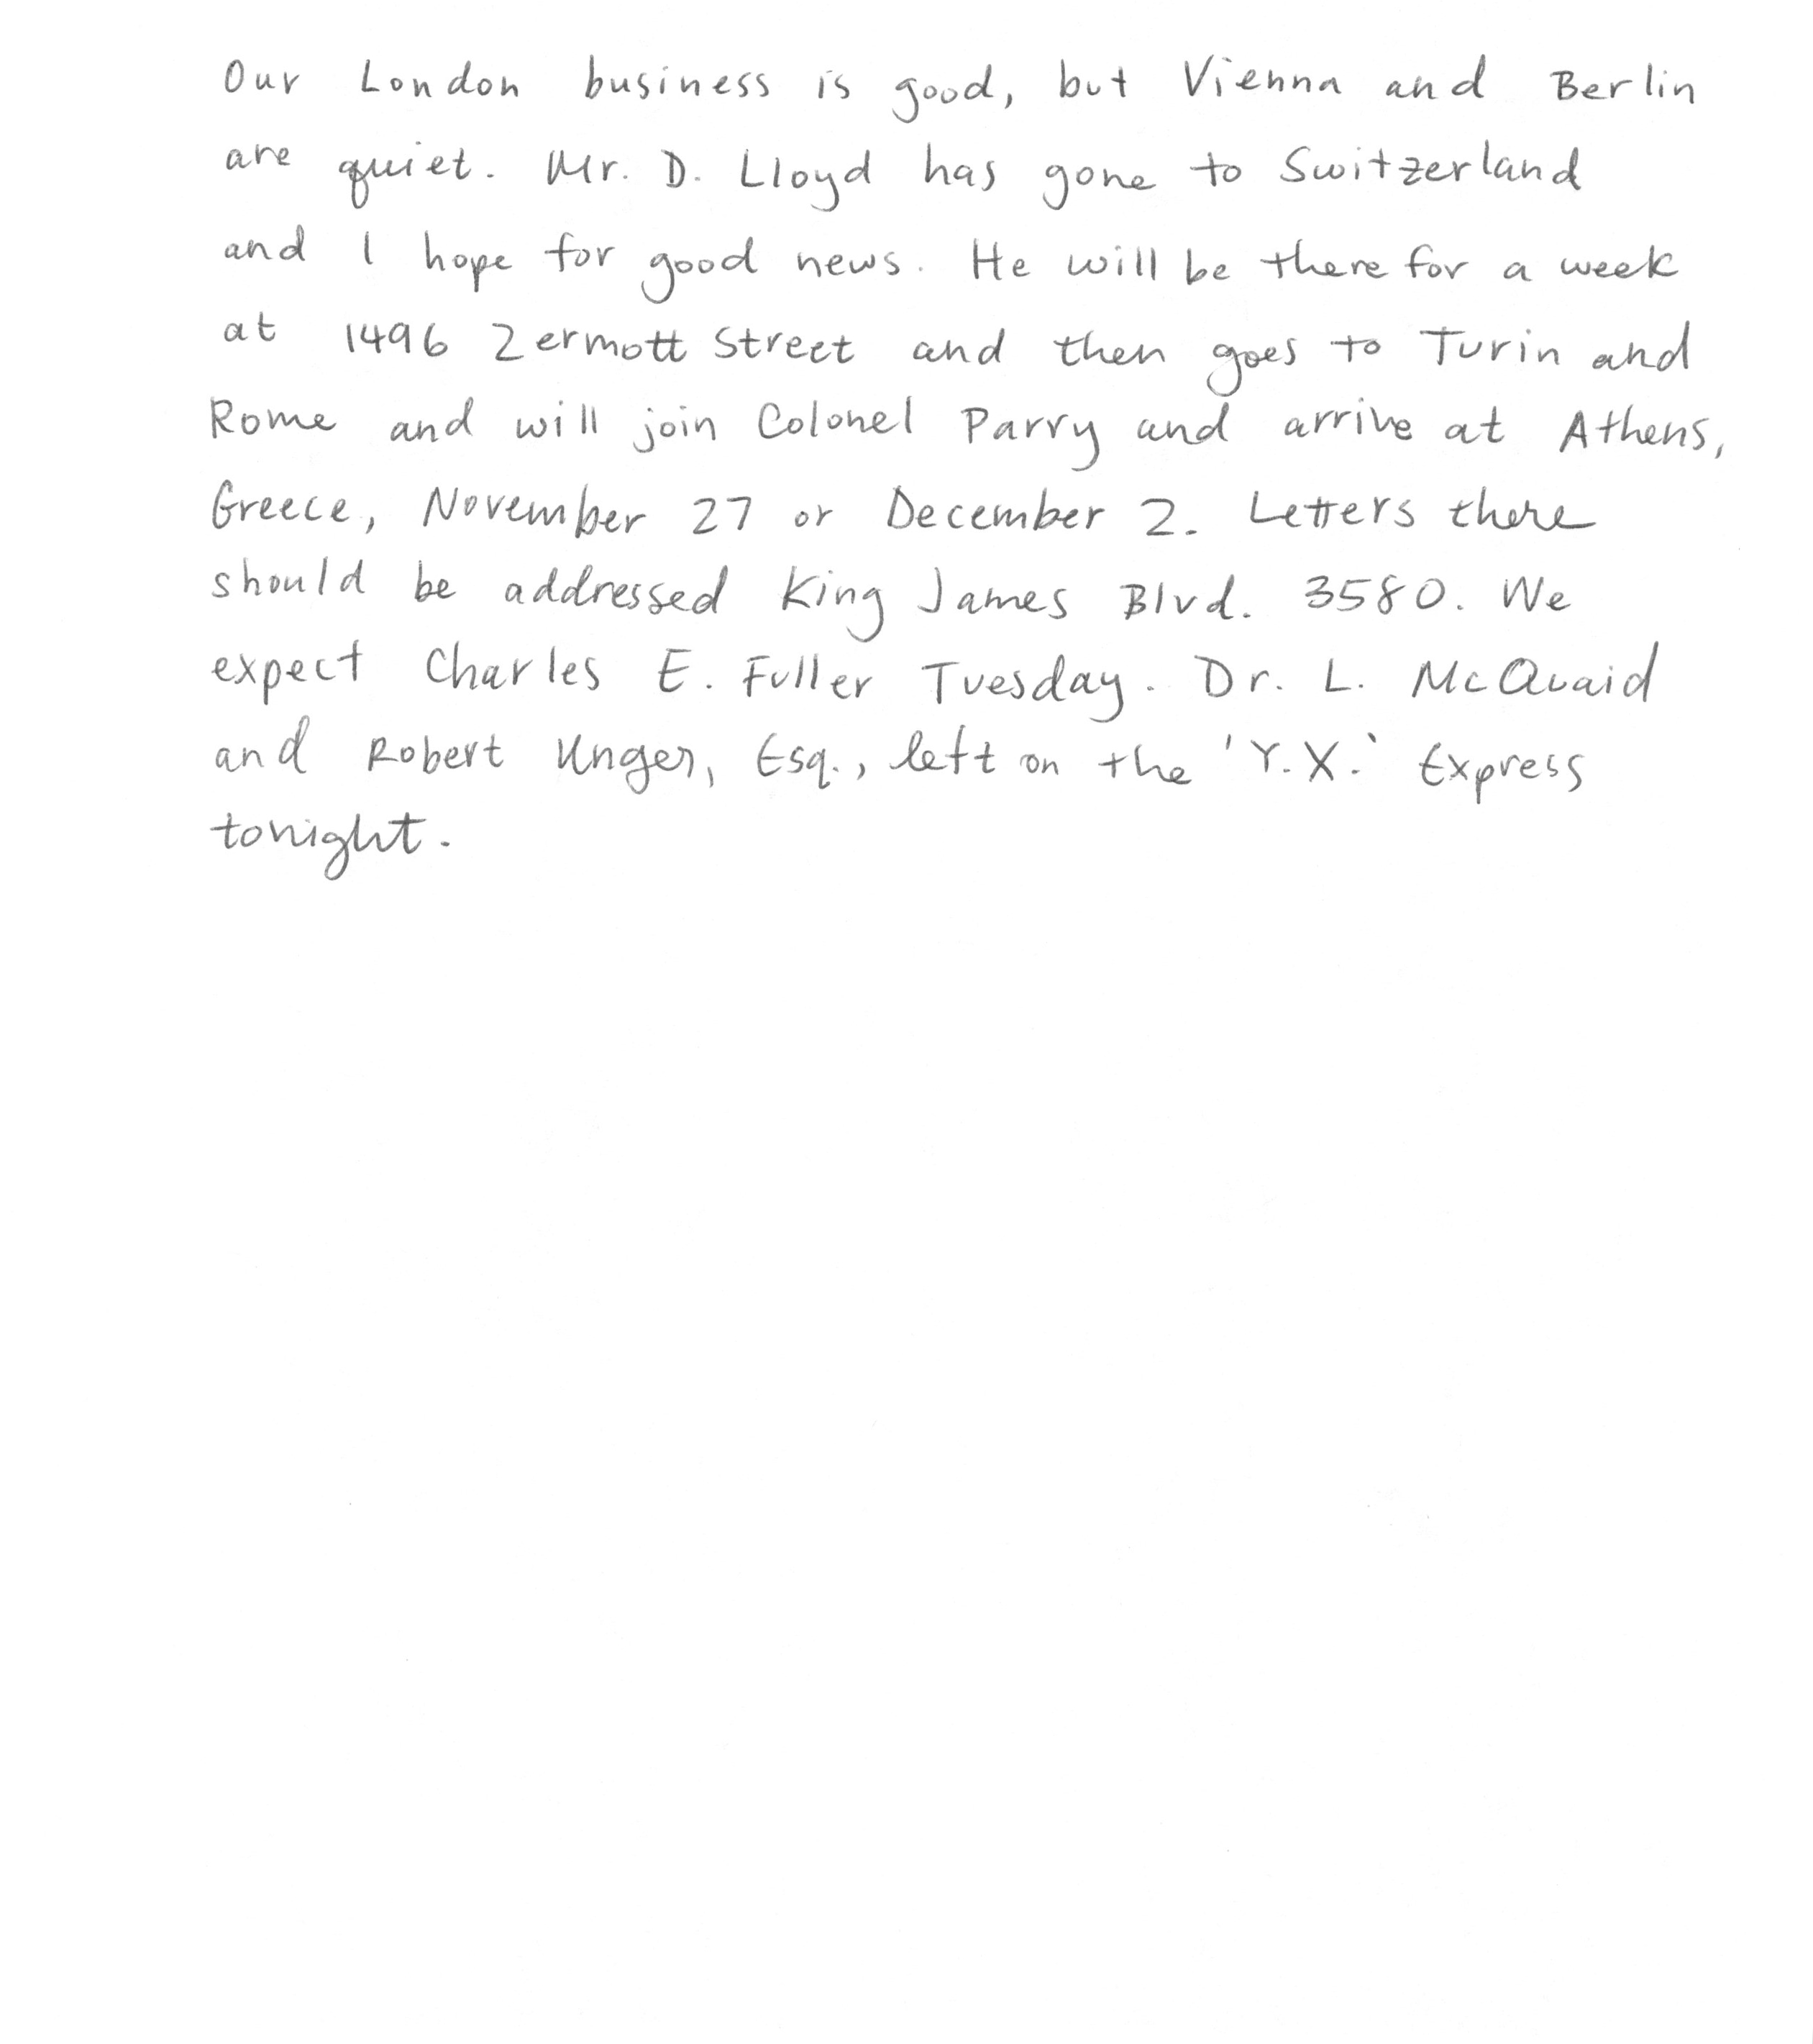 Our London business is good, but Vienna and Berlin
are quiet. Mr. D. Lloyd has gone to Switzerland
and I hope for good news. He will be there for a week
at 1496 Zermott Street and then goes to Turin and
Rome and will join Colonel Parry and arrive at Athens,
Greece, November 27 or December 2. Letters there
should be addressed King James Blvd. 3580. We
expect Charles E. Fuller Tuesday. Dr. L. McQuaid
and Robert Unger, Esq., left on the 'Y.X.' Express
tonight.